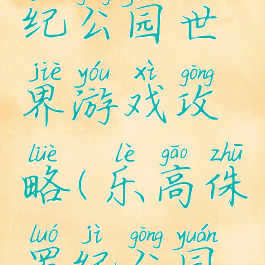 纪公园世
jiè yóu xì gōng
界游戏攻
lüè lè gāo zhū
略(乐高侏
luó jì gōng yuán
罗纪公园